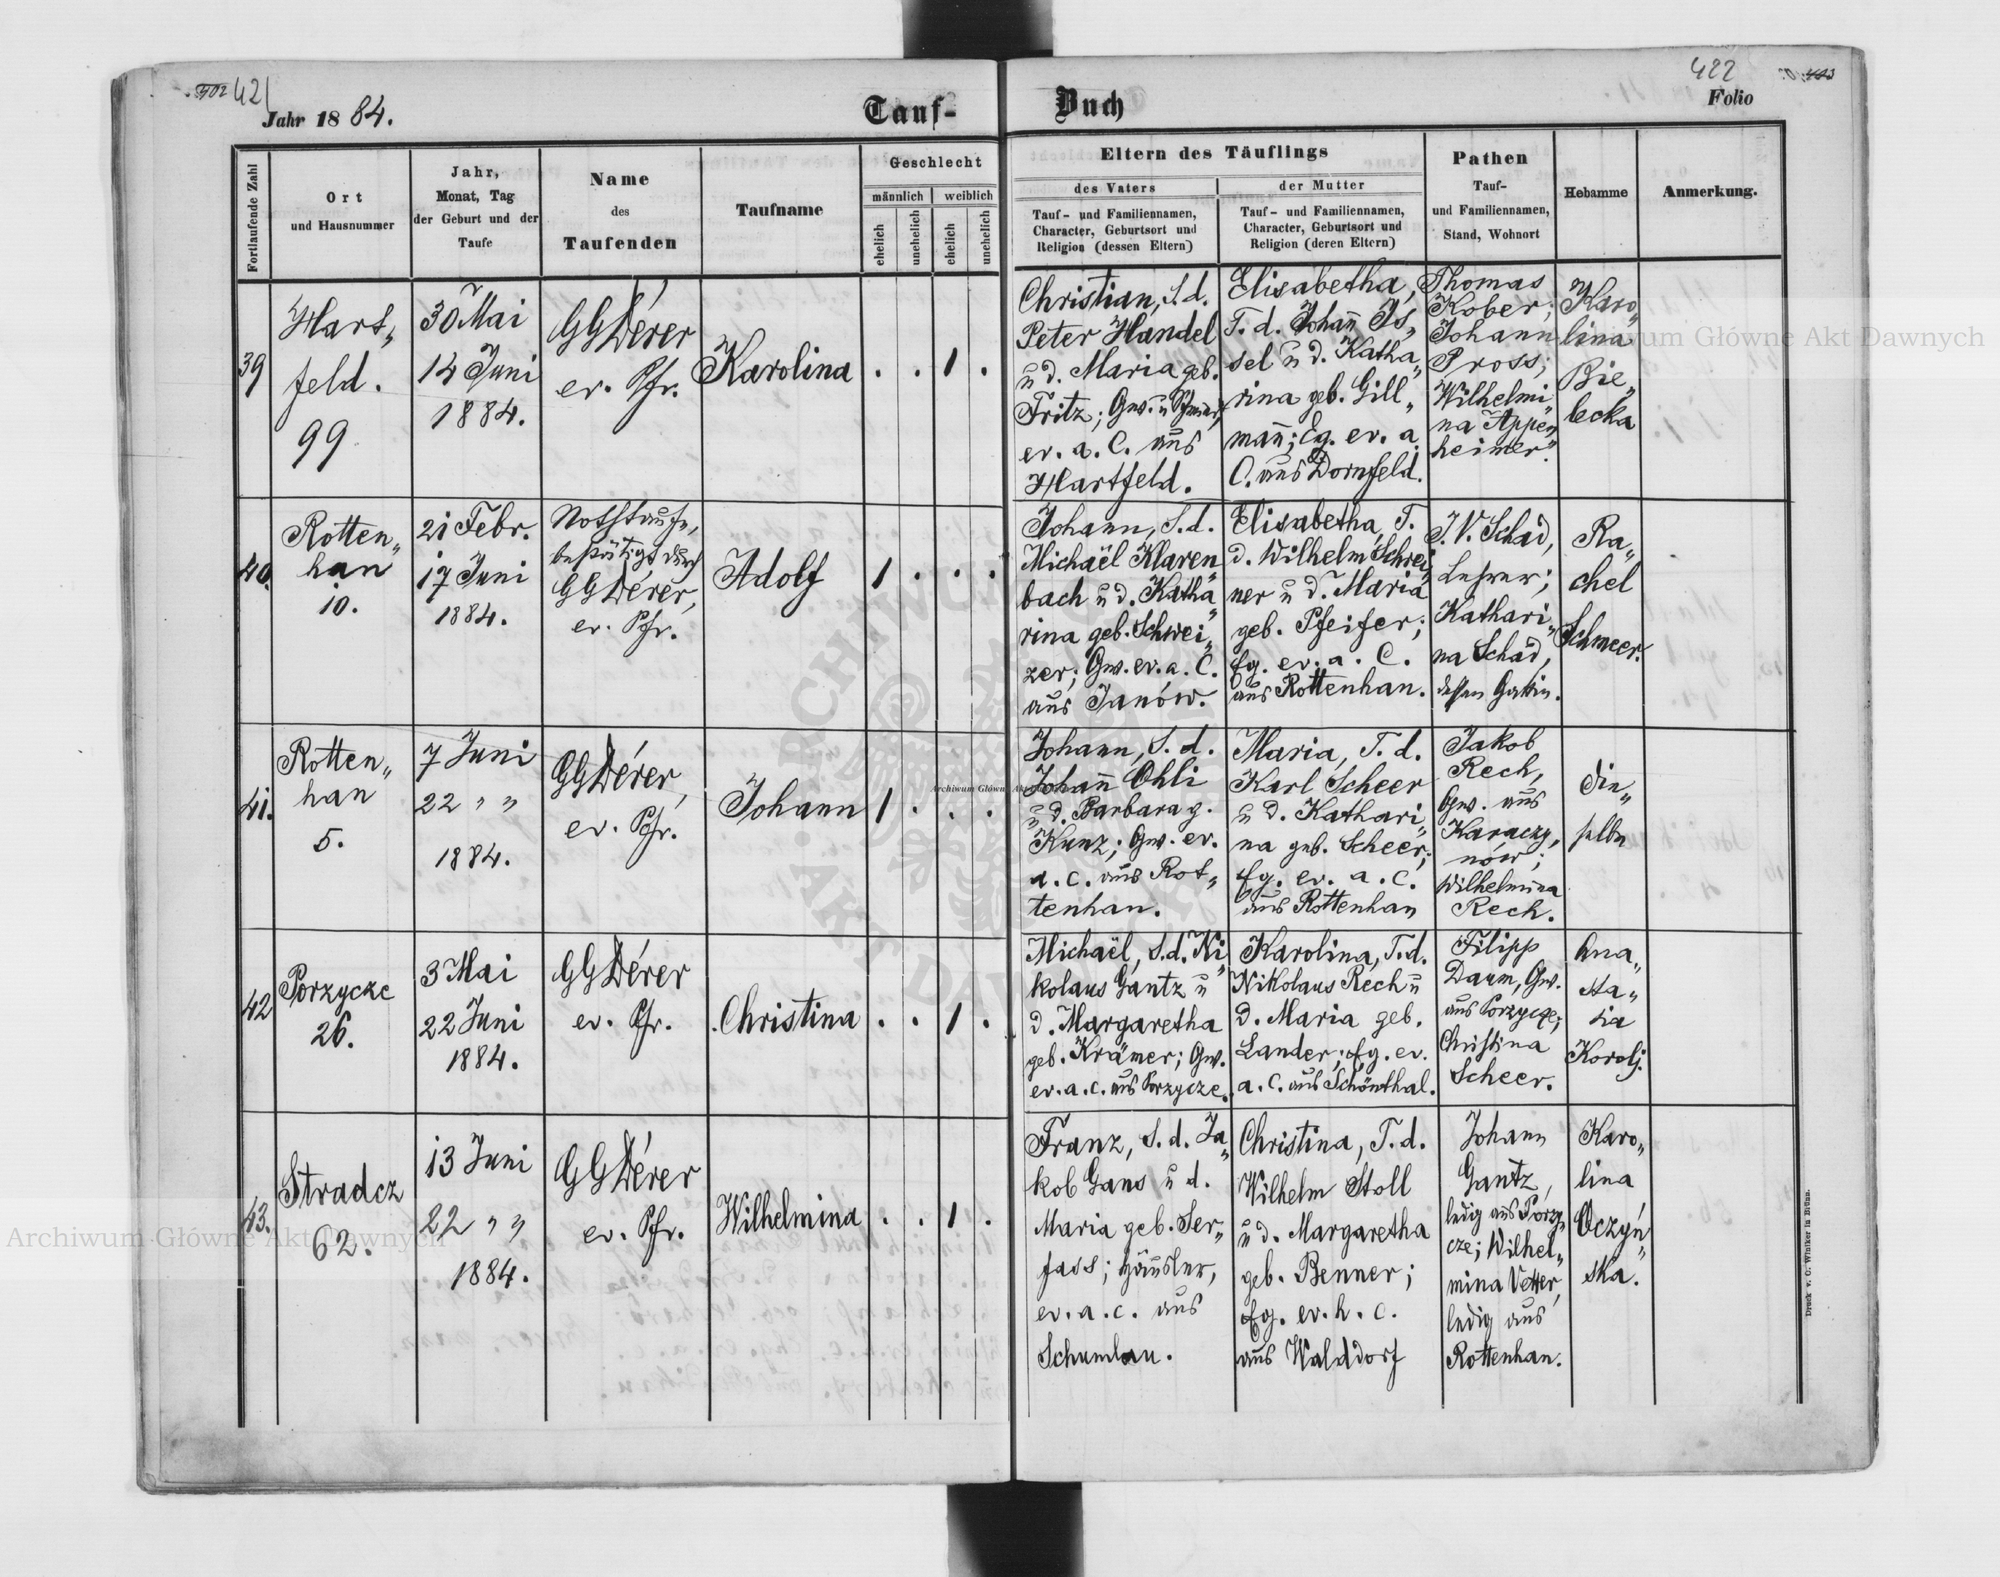 421
Jahr 1884.
Tauf-
Buch
422
Folio
Fortlaufende Zahl
Ort
und Hausnummer
Jahr,
Monat, Tag
der Geburt und der
Taufe
Name
des
Taufenden
Taufname
Geschlecht
männlich
weiblich
ehelich
unehelich
ehelich
unehelich
Eltern des Täuflings
des Vaters
der Mutter
Tauf- und Familiennamen,
Character, Geburtsort und
Religion (dessen Eltern)
Tauf- und Familiennamen,
Character, Geburtsort und
Religion (deren Eltern)
Pathen
Tauf-
und Familiennamen,
Stand, Wohnort
Hebamme
Anmerkung.
39
Hart„
feld.
99
30 Mai
14 Juni
1884.
GGDérer
ev. Pfr.
Karolina
. . 1 .
Christian, S. d.
Peter Handel
u d. Maria geb.
Fritz; Gw. u
ev. a. C. aus
Hartfeld.
Elisabetha,
T. d. Johann Is„
sel u d. Katha„
rina geb. Gill„
mann; Eg. ev. a.
C. aus Dornfeld.
Thomas
Kober;
Johann
Pross;
Wilhelmi„
na Appen„
heimer.
Karo„
lina
Bie„
lecka
40.
Rotten„
han
10.
21 Febr.
17 Juni
1884.
Nothtaufe,
bestätigt durch
GGDérer,
ev. Pfr.
Adolf
1 . . .
Johann, S. d.
Michaël Klaren„
bach u d. Katha„
rina geb. Schwei„
zer; Gw. ev. a. C.
aus Janów.
Elisabetha, T.
d. Wilhelm Schrei„
ner u d. Maria
geb. Pfeifer;
Eg. ev. a. C.
aus Rottenhan.
J. V. Schad,
Lehrer;
Kathari„
na Schad,
dessen Gattin.
Ra„
chel
Schmeer.
41.
Rotten„
han
5.
7 Juni
22 „ „
1884.
GGDérer,
ev. Pfr.
Johann
1 . . .
Johann, S. d.
Johann Ohli
u d. Barbara g.
Kunz; Gw. ev.
a. C. aus Rot„
tenhan.
Maria, T. d.
Karl Scheer
u d. Kathari„
na geb. Scheer;
Eg. ev. a. C.
aus Rottenhan
Jakob
Rech,
Gw. aus
Karaczy„
nów;
Wilhelmina
Rech.
die„
selbe
42
Porzycze
26.
3 Mai
22 Juni
1884.
GGDérer
ev. Pfr.
Christina
. . 1 .
Michaël, S. d. Ni„
kolaus Gantz u
d. Margaretha
geb. Krämer; Gw.
ev. a. C. aus Porzycze.
Karolina, T. d.
Nikolaus Rech u
d. Maria geb.
Lander; Eg. ev.
a. C. aus Schönthal.
Filipp
Daum, Gw.
aus Porzycze;
Christina
Scheer.
Ana„
sta„
sia
Korolj.
43.
Stradcz
62.
13 Juni
22 „ „
1884.
GGDérer
ev. Pfr.
Wilhelmina
. . 1 .
Franz, S. d. Ja„
kob Gans u d.
Maria geb. Ser„
fass; Häusler,
ev. a. C. aus
Schumlau.
Christina, T. d.
Wilhelm Stoll
u d. Margaretha
geb. Benner;
Eg. ev. h. C.
aus Walddorf
Johann
Gantz,
ledig aus Porzy„
cze; Wilhel„
mina Vetter,
ledig aus
Rottenhan.
Karo„
lina
Oczyń„
ska.
Druck v. C. Winiker in Brünn.
Archiwum Główne Akt Dawnych
Archiwum Główne Akt Dawnych